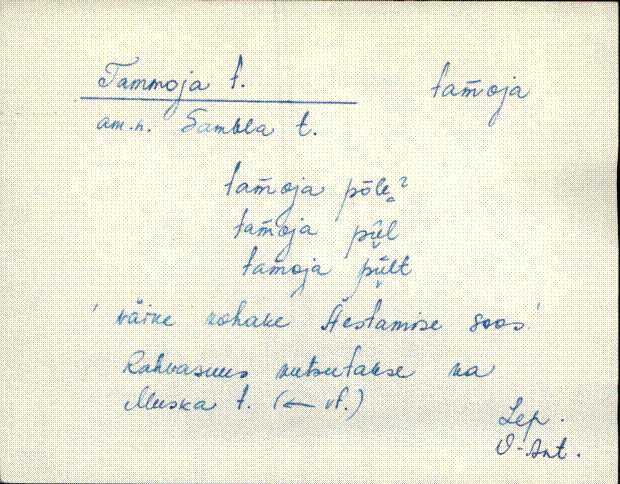 Tammoja t. tam̄oja
am.n. Sambla t.
tam̄oja põle̥?
tam̄oja pi̮i̮l
tam̄oja pi̮i̮lt
' väike kohake Äestamise soos'
Rahvasuus kutsutakse ka
Muska t. (← vt.)
Lep.
V-Ant.